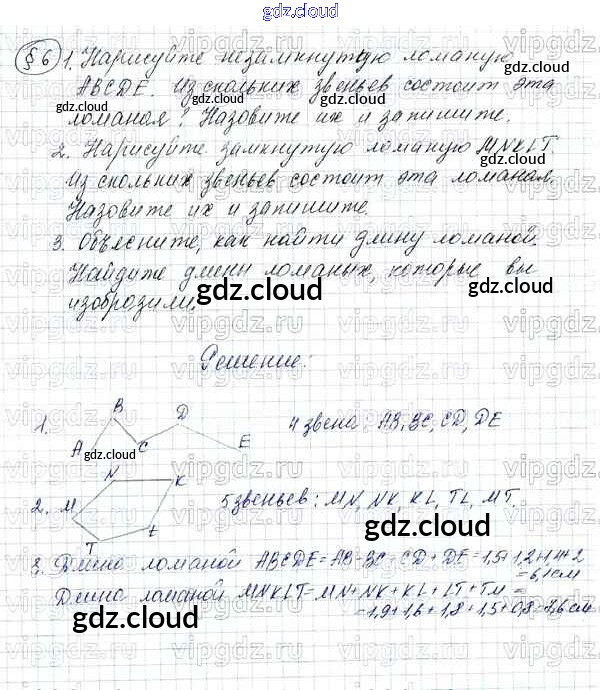 gdz.cloud
§6 1. Нарисуйте незамкнутую ломаную
ABCDE. Из скольких звеньев состоит эта
ломаная? Назовите их и запишите.
2. Нарисуйте замкнутую ломаную MNKLT.
Из скольких звеньев состоит эта ломаная.
Назовите их и запишите.
3. Объесните, как найти длину ломаной.
Найдите длени ломаных, которые вы
изобразили.
gdz.cloud
Решение:
1. A B C D E 4 звена: AB, BC, CD, DE
2. M N K L T 5 звеньев: MN, NK, KL, TL, MT.
3. Длина ломаной ABCDE=AB+BC+CD+DE=1,5+1,2+1,4+2
=6,1 см
Длина ломаной MNKLT=MN+NK+KL+LT+TM=
=1,9+1,6+1,8+1,5+0,8=7,6 см
gdz.cloud
vipgdz.ru